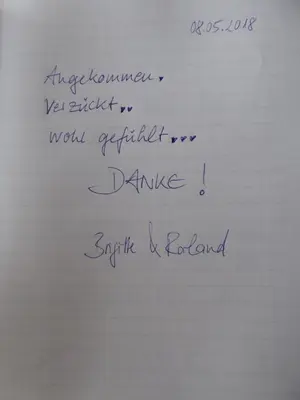 08.05.2018
Angekommen.
Verzückt..
wohl gefühlt...
DANKE!
Brigitte & Roland